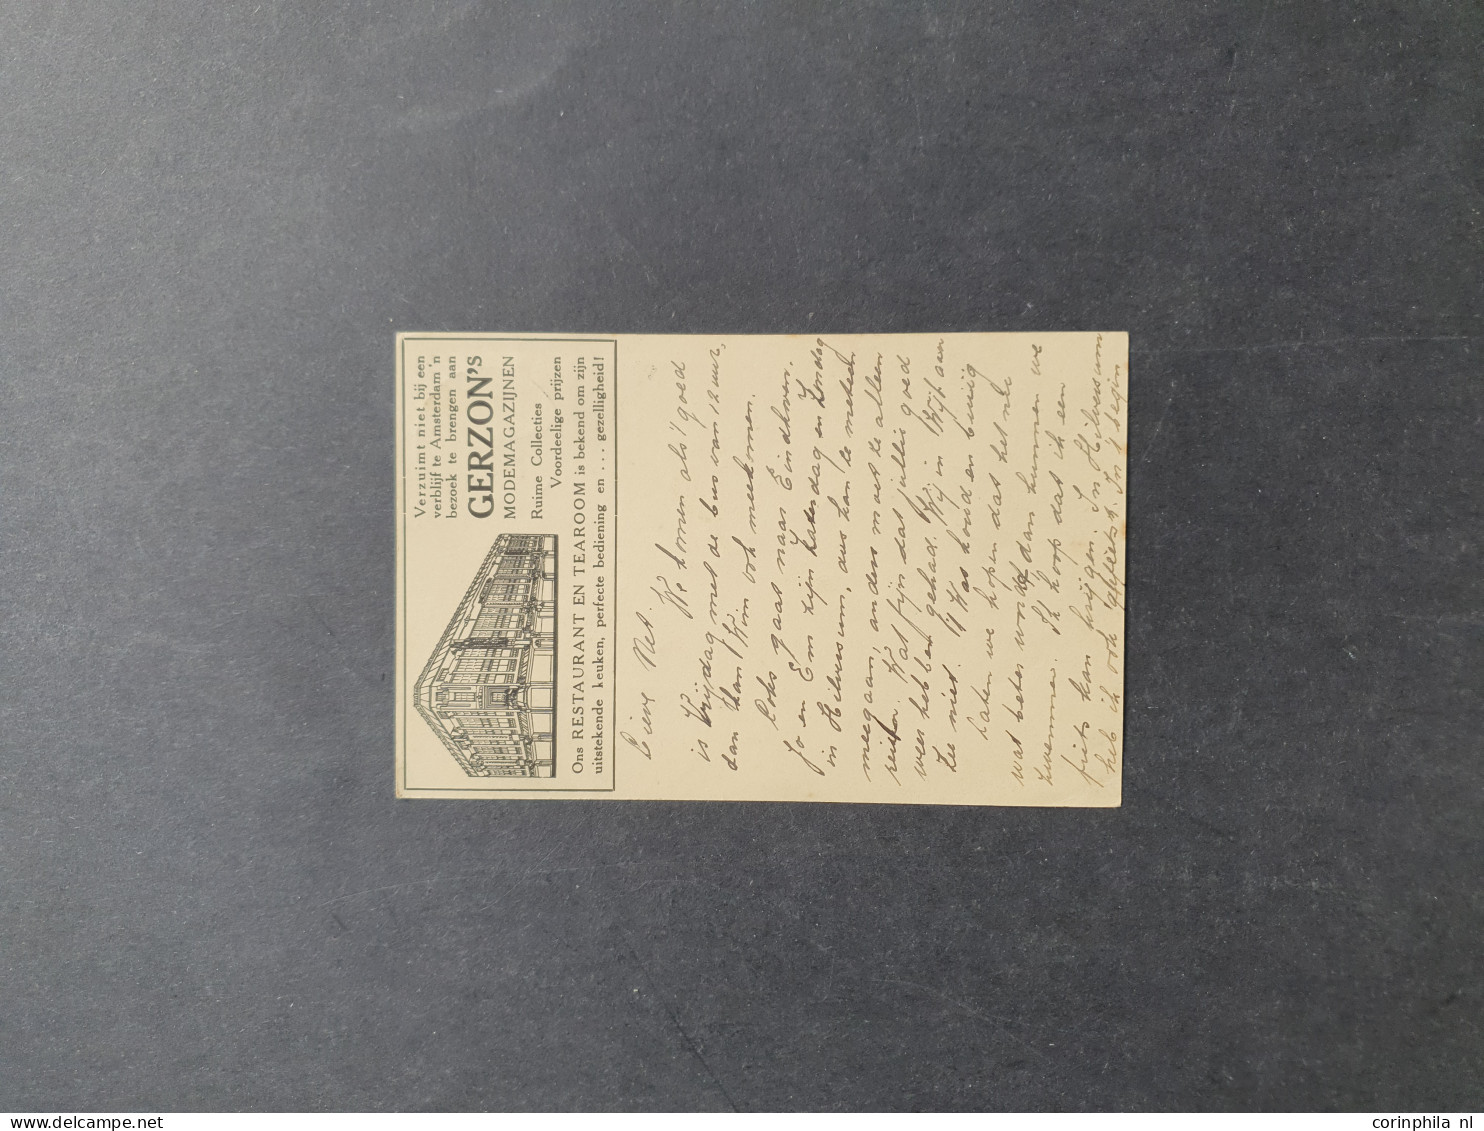 Verzuimt niet bij een
verblijf te Amsterdam 'n
bezoek te brengen aan
GERZON'S
MODEMAGAZIJNEN
Ruime Collecties
Voordeelige prijzen
Ons RESTAURANT EN TEAROOM is bekend om zijn
uitstekende keuken, perfecte bediening en ... gezelligheid!
Lieve Net.
We komen als 't goed
is Vrijdag met de bus van 12 uur,
dan kan Wim ook meekomen.
gaat naar Eindhoven.
Jo en Em zijn Zaterdag en Zondag
in Hilversum, dus kan ze
meegaan, anders moest ze alleen
reizen. Wat fijn dat jullie goed
weer hebben gehad. Wij in Wijk aan
Zee niet. 't Was koud en buiig
Laten we hopen dat het nu
wat beter wordt dan kunnen we
zwemmen. Ik hoop dat ik een
fiets kan krijgen. In Hilversum
heb ik ook gefietst. In 't begin
corinphila nl